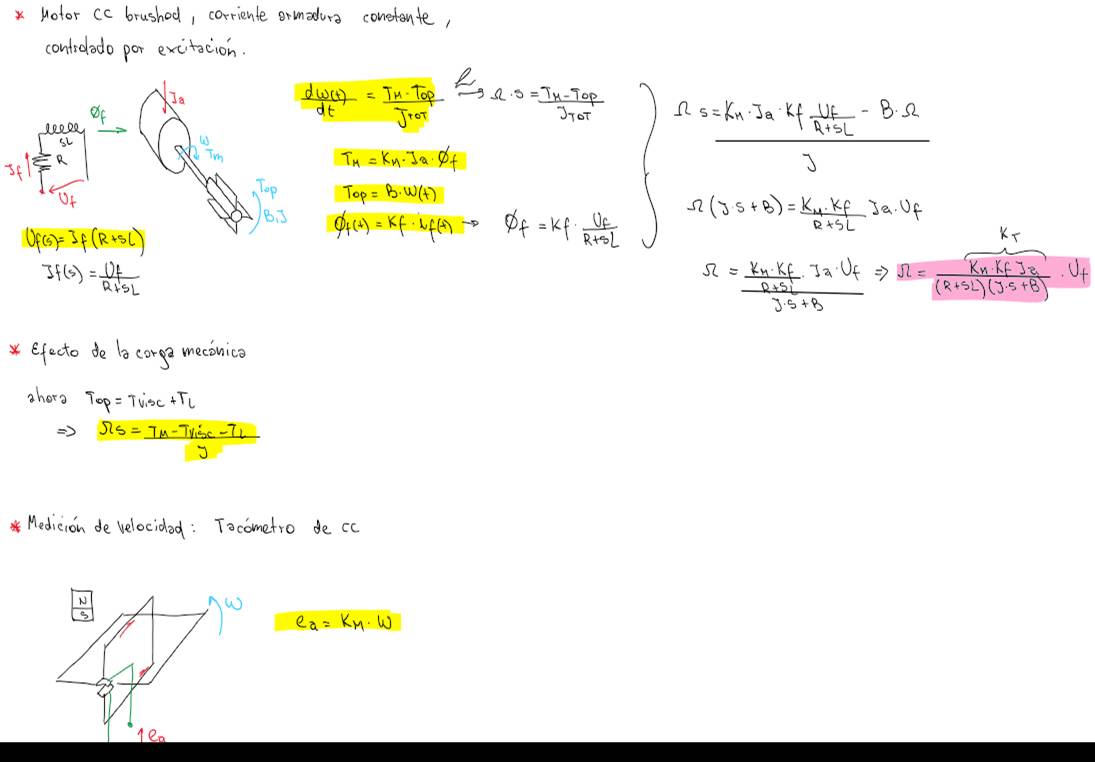 * Motor CC brushed, corriente armadura constante,
controlado por excitación.
Ja
Φf
SL
R
Jf
Uf
ω
Tm
Top
B,J
dω(t)/dt = (TM - Top)/JTOT
ℒ→ Ω·s = (TM - Top)/JTOT
TM = KM·Ja·Φf
Top = B·ω(t)
Φf(t) = Kf·if(t) → Φf = Kf·Uf/(R+SL)
Uf(s) = Jf(R+SL)
Jf(s) = Uf/(R+SL)
Ω s = (KM·Ja·Kf Uf/(R+SL) - B·Ω)/J
Ω(J·s+B) = (KM·Kf)/(R+SL) Ja·Uf
KT
Ω = ((KM·Kf)/(R+SL)·Ja·Uf)/(J·s+B) ⇒ Ω = (KM·Kf Ja)/((R+SL)(J·s+B))·Uf
* Efecto de la carga mecánica
ahora Top = Tvisc + TL
⇒ Ωs = (TM - Tvisc - TL)/J
* Medición de velocidad: Tacómetro de CC
N
S
ω
ea = KM·ω
ea